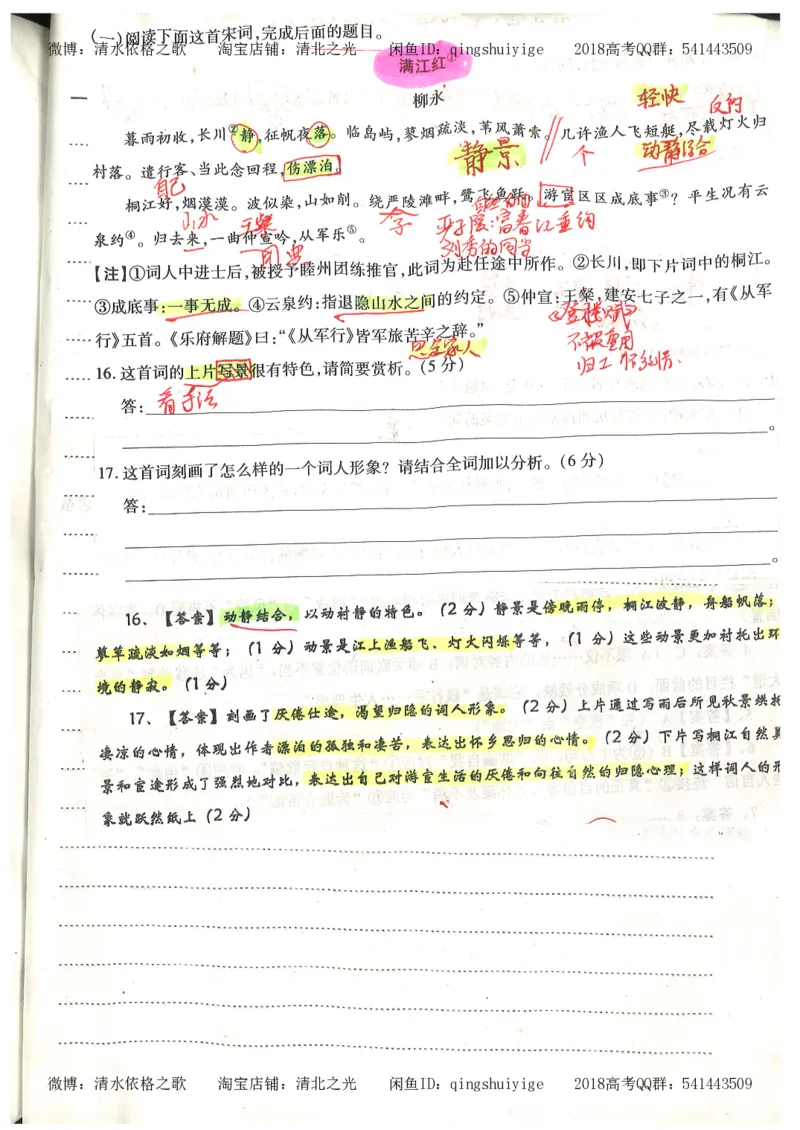 (一)阅读下面这首宋词,完成后面的题目。
微博：清水依格之歌 淘宝店铺：清北之光 闲鱼ID：qingshuiyige 2018高考QQ群：541443509
满江红①
柳永
一
轻快
反衬
暮雨初收,长川②静,征帆夜落。临岛屿,蓼烟疏淡,苇风萧索。几许渔人飞短艇,尽载灯火归
静景
个
动静结合
村落。遣行客、当此念回程,伤漂泊。
自己
桐江好,烟漠漠。波似染,山如削。绕严陵滩畔,鹭飞鱼跃。游宦区区成底事③?平生况有云
山水
王粲
严子陵:富春江垂钓
刘秀的同学
泉约④。归去来,一曲仲宣吟,从军乐⑤。
【注】①词人中进士后,被授予睦州团练推官,此词为赴任途中所作。②长川,即下片词中的桐江。
③成底事:一事无成。④云泉约:指退隐山水之间的约定。⑤仲宣:王粲,建安七子之一,有《从军
《登楼赋》
行》五首。《乐府解题》曰:“《从军行》皆军旅苦辛之辞。”
不被重用
思念家人
16.这首词的上片写景很有特色,请简要赏析。(5分)
看手法
答:
。
17.这首词刻画了怎么样的一个词人形象?请结合全词加以分析。(6分)
答:
。
16、【答案】动静结合，以动衬静的特色。（2分）静景是傍晚雨停，桐江波静，舟船帆落；
蓼草疏淡如烟等等；（1分）动景是江上渔船飞、灯火闪烁等等，（1分）这些动景更加衬托出环
境的静寂。（1分）
17、【答案】刻画了厌倦仕途，渴望归隐的词人形象。（2分）上片通过写雨后所见秋景烘托
凄凉的心情，体现出作者漂泊的孤独和凄苦，表达出怀乡思归的心情。（2分）下片写桐江自然美
景和宦途形成了强烈地对比，表达出自己对游宦生活的厌倦和向往自然的归隐心理；这样词人的形
象就跃然纸上（2分）
微博：清水依格之歌 淘宝店铺：清北之光 闲鱼ID：qingshuiyige 2018高考QQ群：541443509